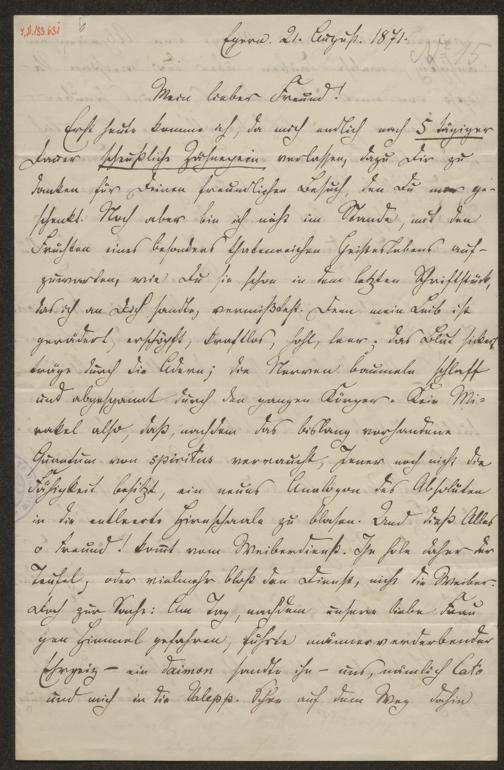 Egern. 21. August. 1871.
No 15
Mein lieber Freund!
Erst heute komme ich, da mich endlich nach 5 tägiger
Dauer scheußliche Zahnepein verlassen, dazu Dir zu
danken für Deinen freundlichen Besuch, den Du mir ge-
schenkt. Noch aber bin ich nicht im Stande, mit den
Früchten eines besonders thatenreichen Geisteslebens auf-
zuwarten, wie Du sie schon in dem letzten Schriftstück,
das ich an Dich sandte, vermißtest. Denn mein Leib ist
gerädert, erschöpft, kraftlos, hohl, leer; das Blut sickert
träge durch die Adern; die Nerven baumeln schlaff
und abgespannt durch den ganzen Körper. Kein Mi-
rakel also, daß, nachdem das bislang vorhandene
Quantum von spiritus verraucht, Jener noch nicht die
Fähigkeit besitzt, ein neues Analogon des Absoluten
in die entleerte Hirnschaale zu blasen. Und dieß Alles
o Freund! kommt vom Weiberdienst. Ihn hole daher der
Teufel, oder vielmehr bloß den Dienst, nicht die Weiber.
Doch zur Sache: Am Tag, nachdem unsere liebe Frau
gen Himmel gefahren, führte männerverderbender
Ehrgeiz – ein Daimon sandte ihn – uns, nämlich Cato
und mich in die Valepp. Schon auf dem Weg dahin